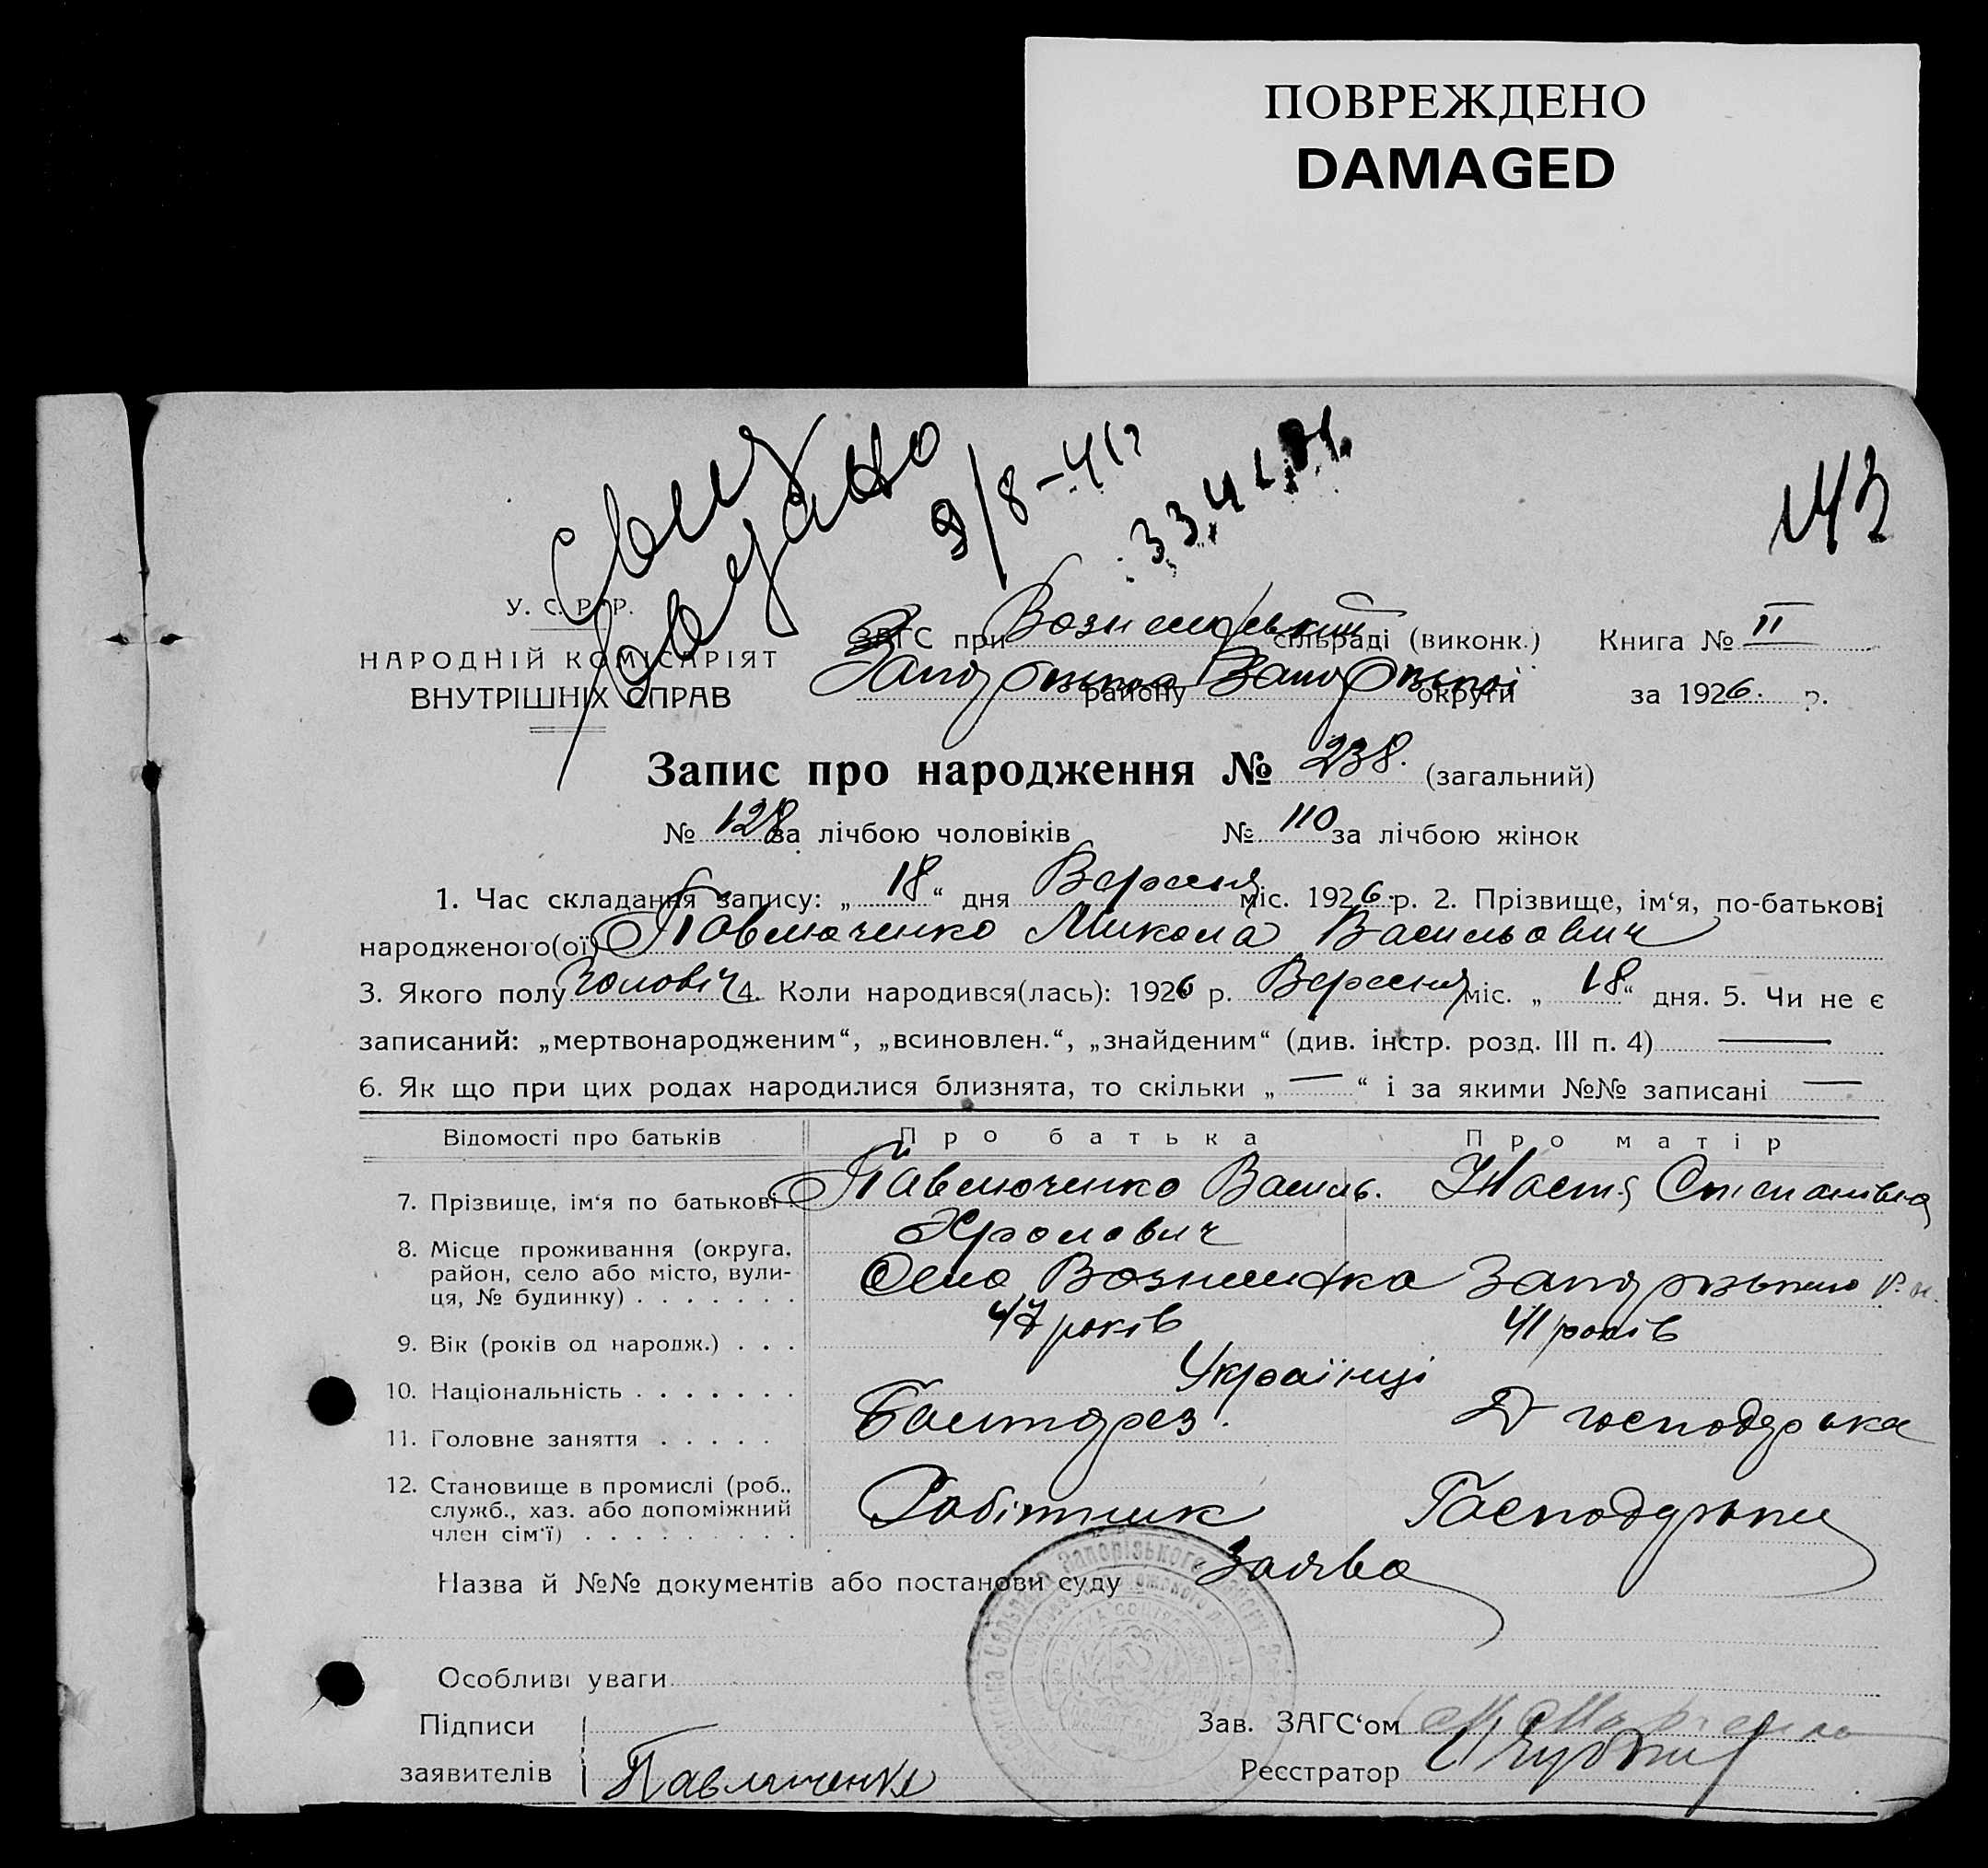 ПОВРЕЖДЕНО
DAMAGED
143
9/8-41г
У. С. Р. Р.
НАРОДНІЙ КОМІСАРІЯТ
ВНУТРІШНІХ СПРАВ
ЗАГС при Вознесенській сільраді (виконк.) Книга № II
району Запорізької округи за 1926 р.
Запис про народження № 238. (загальний)
№ 128 за лічбою чоловіків № 110 за лічбою жінок
1. Час складання запису: „18“ дня Вересня міс. 1926 р. 2. Прізвище, ім‘я, по-батькові
народженого(ої) Павлюченко Микола Васильович
3. Якого полу чоловіч 4. Коли народився(лась): 1926 р. Вересня міс. „18“ дня. 5. Чи не є
записаний: „мертвонародженим“, „всиновлен.“, „знайденим“ (див. інстр. розд. III п. 4) —
6. Як що при цих родах народилися близнята, то скільки „—“ і за якими №№ записані —
Відомості про батьків Про батька Про матір
7. Прізвище, ім‘я по батькові Павлюченко Василь. Настя Степанівна
Фролович
8. Місце проживання (округа, район, село або місто, вулиця, № будинку) Село Вознесенка Запорізького р.
9. Вік (років од народж.) 47 років 41 років
10. Національність Українці
11. Головне заняття Д господарка
12. Становище в промислі (роб., служб., хаз. або допоміжний член сім‘ї) Робітник Господарки
Назва й №№ документів або постанови суду Заява
Особливі уваги
Підписи Зав. ЗАГС‘ом
заявителів Павлюченко Реєстратор